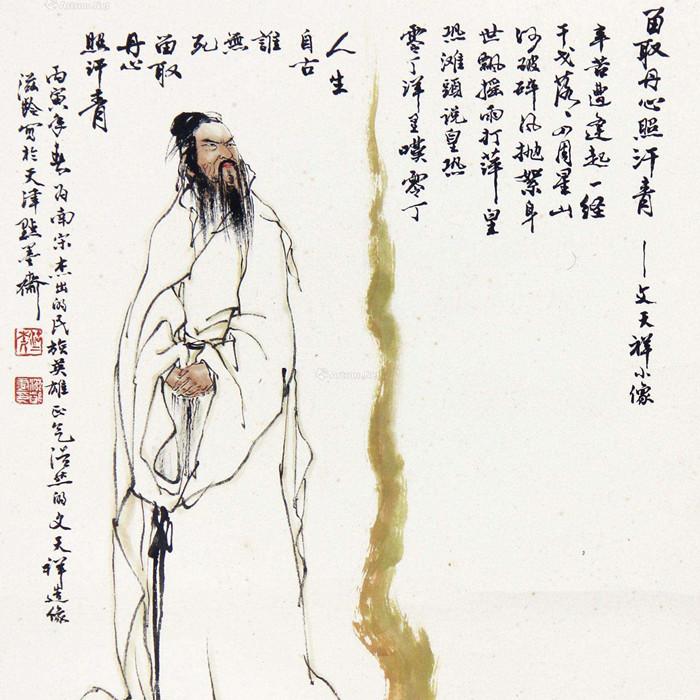 留取丹心照汗青 — 文天祥小像
辛苦遭逢起一经
干戈落々四周星山
河破碎风抛絮身
世飘摇雨打萍皇
恐滩頭说皇恐
零丁洋里嘆零丁
人生
自古
誰
無
死
留取
丹心
照汗青
丙寅年春为南宋杰出的民族英雄正气浩然的文天祥造像
滋龄写於天津點墨斋
Artron.Net